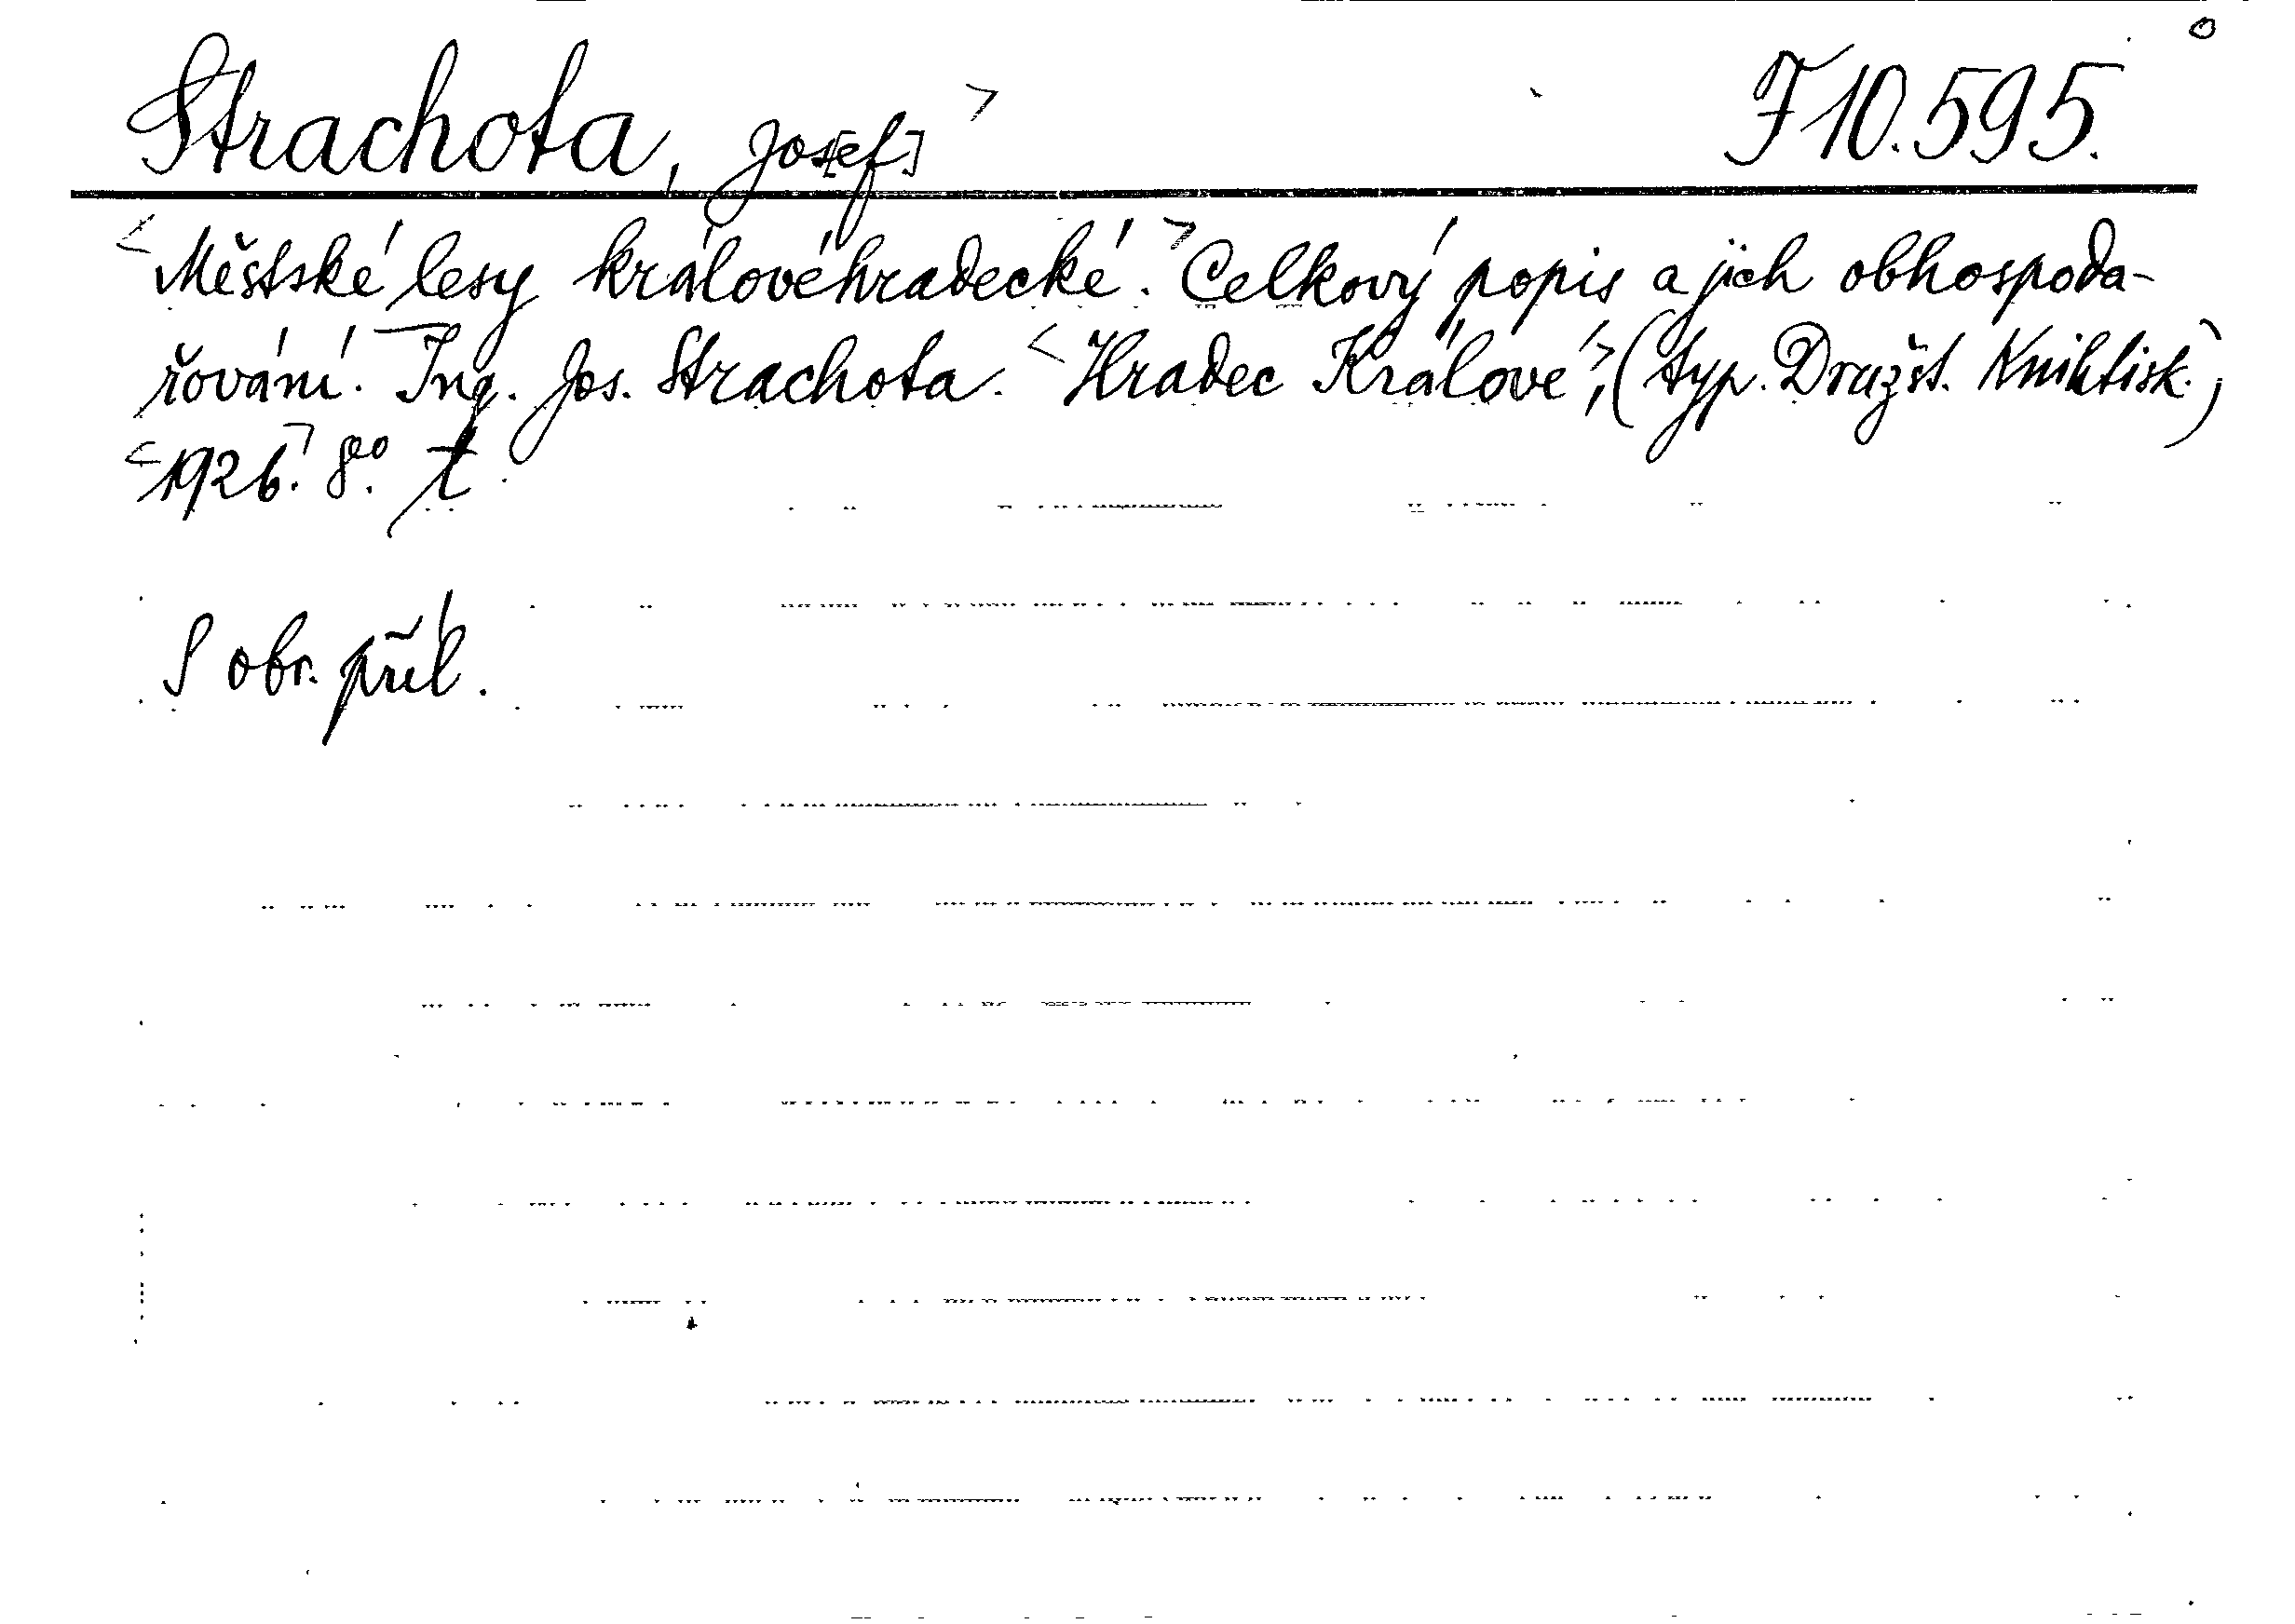 Strachota, Jos[ef] > F 10.595.
<Městské lesy královéhradecké.> Celkový popis a jich obhospoda-
řování. Ing. Jos. Strachota. <Hradec Králové>, (typ. Družst. Knihtisk.)
<1926.> 8°.
S obr. příl.